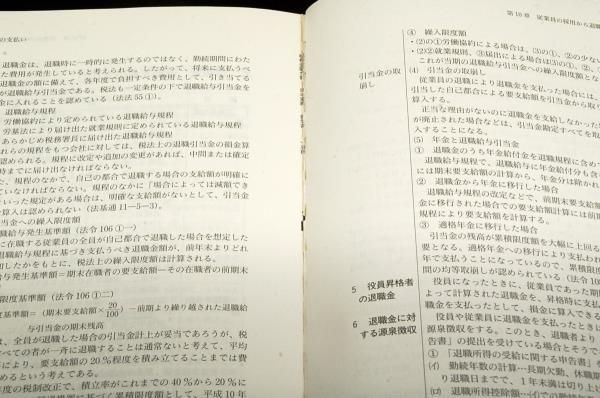 の支払い
退職金は、退職時に一時的に発生するのではなく、勤続期間にわた
た費用が発生していると考えられる。したがって、将来に支払うべ
職金の額に備えて、各年度で負担すべき費用として、引き当てる
が退職給与引当金である。税法も一定条件の下で退職給与引当金を
金に入れることを認めている（法法55①）。
退職給与規程
労働協約により定められている退職給与規程
労基法により届け出た就業規則に定められている退職給与規程
あらかじめ税務署長に届け出た退職給与規程
れらの規程をもつ会社に対しては、税法上の退職引当金の損金算
認められる。規程に改定や追加の変更があれば、中間または確定
時までに届け出なければならない。
た、規程のなかで、自己の都合で退職する場合の支給額が明確に
ていなければならない。規程のなかに「場合によっては減額でき
といった規定がある場合は、明確な支給額がないとして、引当金
算入は認められない（法基通11―5―3）。
当金への繰入限度額
給与発生基準額（法令106①一）
に在職する従業員の全員が自己都合で退職した場合を想定した
退職給与規程に基づき支払うべき退職金額が、前年末よりどれ
加したかをもとに、税法上の繰入限度額は計算される。
給与発生基準額＝期末在職者の要支給額―その在職者の前期末
限度基準額（法令106①二）
度基準額＝（期末要支給額×20/100）－前期より繰り越された退職給
与引当金の期末残高
は、全員が退職した場合の引当金計上が妥当であろうが、税
すべての者が一斉に退職することは通常ないと考えて、平均
により、要支給額の20％程度を積み立てることまでは費
めるという考えである。
年度の税制改正で、積立率がこれまでの40％から20％に
第10章 従業員の採用から退職
④ 繰入限度額
引当金の取
崩し
(4) 引当金の取崩し
従業員の退職により退職金を支払った場合には、
引当した自己都合による要支給額を引当金から取り
算入する。
正当な理由がないのに退職金を支給しなかった
が廃止された場合などは、引当金勘定すべてを取
入することになる。
(5) 年金と退職給与引当金
① 退職金のうち年金給付金を退職規程に含め
退職給与規程で、退職給与に年金給付分も含
には期末要支給額の計算から、年金分は除かれ
② 退職金から年金に移行した場合
退職給与規程の改定などで、前期末要支給額
金に移行された場合での要支給額計算には前
規程により要支給額を計算する。
③ 適格年金に移行した場合
引当金の残高が累積限度額を大幅に上回る
要となる。適格年金への移行により支払われ
年で支払うことになっているので、累積限度
間の均等取崩しが認められている（法令10
5 役員昇格者
の退職金
役員になったときに、従業員であった期
よって計算された退職金を、昇格時に支払
職金として、損金に算入できる
6 退職金に対
する源泉徴収
役員や従業員に退職金を支払ったときに
源泉徴収をする。このとき、退職者より
告書」の提出を受けている場合とそうで
① 「退職所得の受給に関する申告書」を
(イ) 勤続年数の計算―長期欠勤、休職期
り退職日までで、1年未満は切り上げ
(ロ) 退職所得控除額